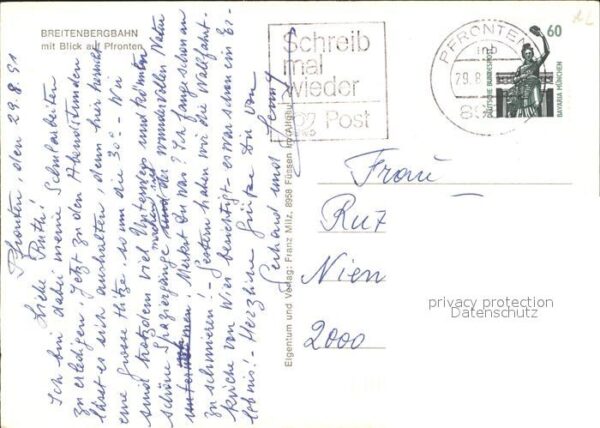 BREITENBERGBAHN
mit Blick auf Pfronten
Pfronten, den 29.8.91
Liebe Ruth!
Ich bin dabei meine Schularbeiten
zu erledigen. Jetzt zu den Abendstunden
lässt es sich aushalten, denn hier herrscht
eine grosse Hitze, so um die 30°. Wir
sind trotzdem viel unterwegs und
schöne Spaziergänge der wundervollen Natur
Malest Du was? Ich fange schon an
zu schmieren! - Gestern haben wir die Wallfahrt-
kirche von Wies besichtigt - es war schon ein Er-
lebnis! - Herzliche Grüße Dir von
Gerhard und Jenny
Eigentum und Verlag: Franz Milz, 8958 Füssen im Allgäu
Schreib
mal
wieder
Post
PFRONTEN
29.8.
60
DEUTSCHE BUNDESPOST
BAVARIA MÜNCHEN
Frau
Rut
Nien
2000
privacy protection
Datenschutz